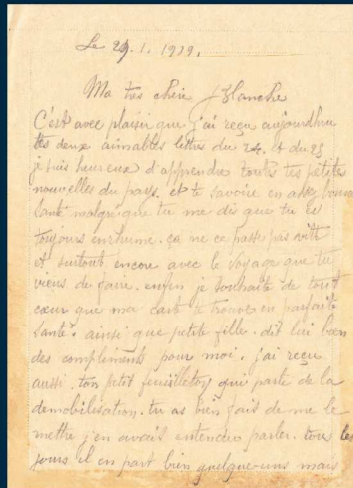 Le 29.1.1919.
Ma très chère Blanche
C'est avec plaisir que j'ai reçu aujourdhui
tes deux aimables lettres du 24. et du 25
je suis heureux d'apprendre toutes tes petites
nouvelles du pays. et te savoire en assez bonne
santé malgré que tu me dis que tu es
toujours enrhumé. ça ne ce passe pas vite
et surtout encore avec le voyage que tu
viens de faire. enfin je souhaite de tout
cœur que ma carte te trouve en parfaite
santé. ainsi que petite fille. dit lui bien
des compliments pour moi. j'ai reçu
aussi. ton petit feuilleton qui parte de la
demobilisation. tu as bien fais de me le
mettre j'en avait entendu parler. tou les
jours il en part bien quelque-uns mais